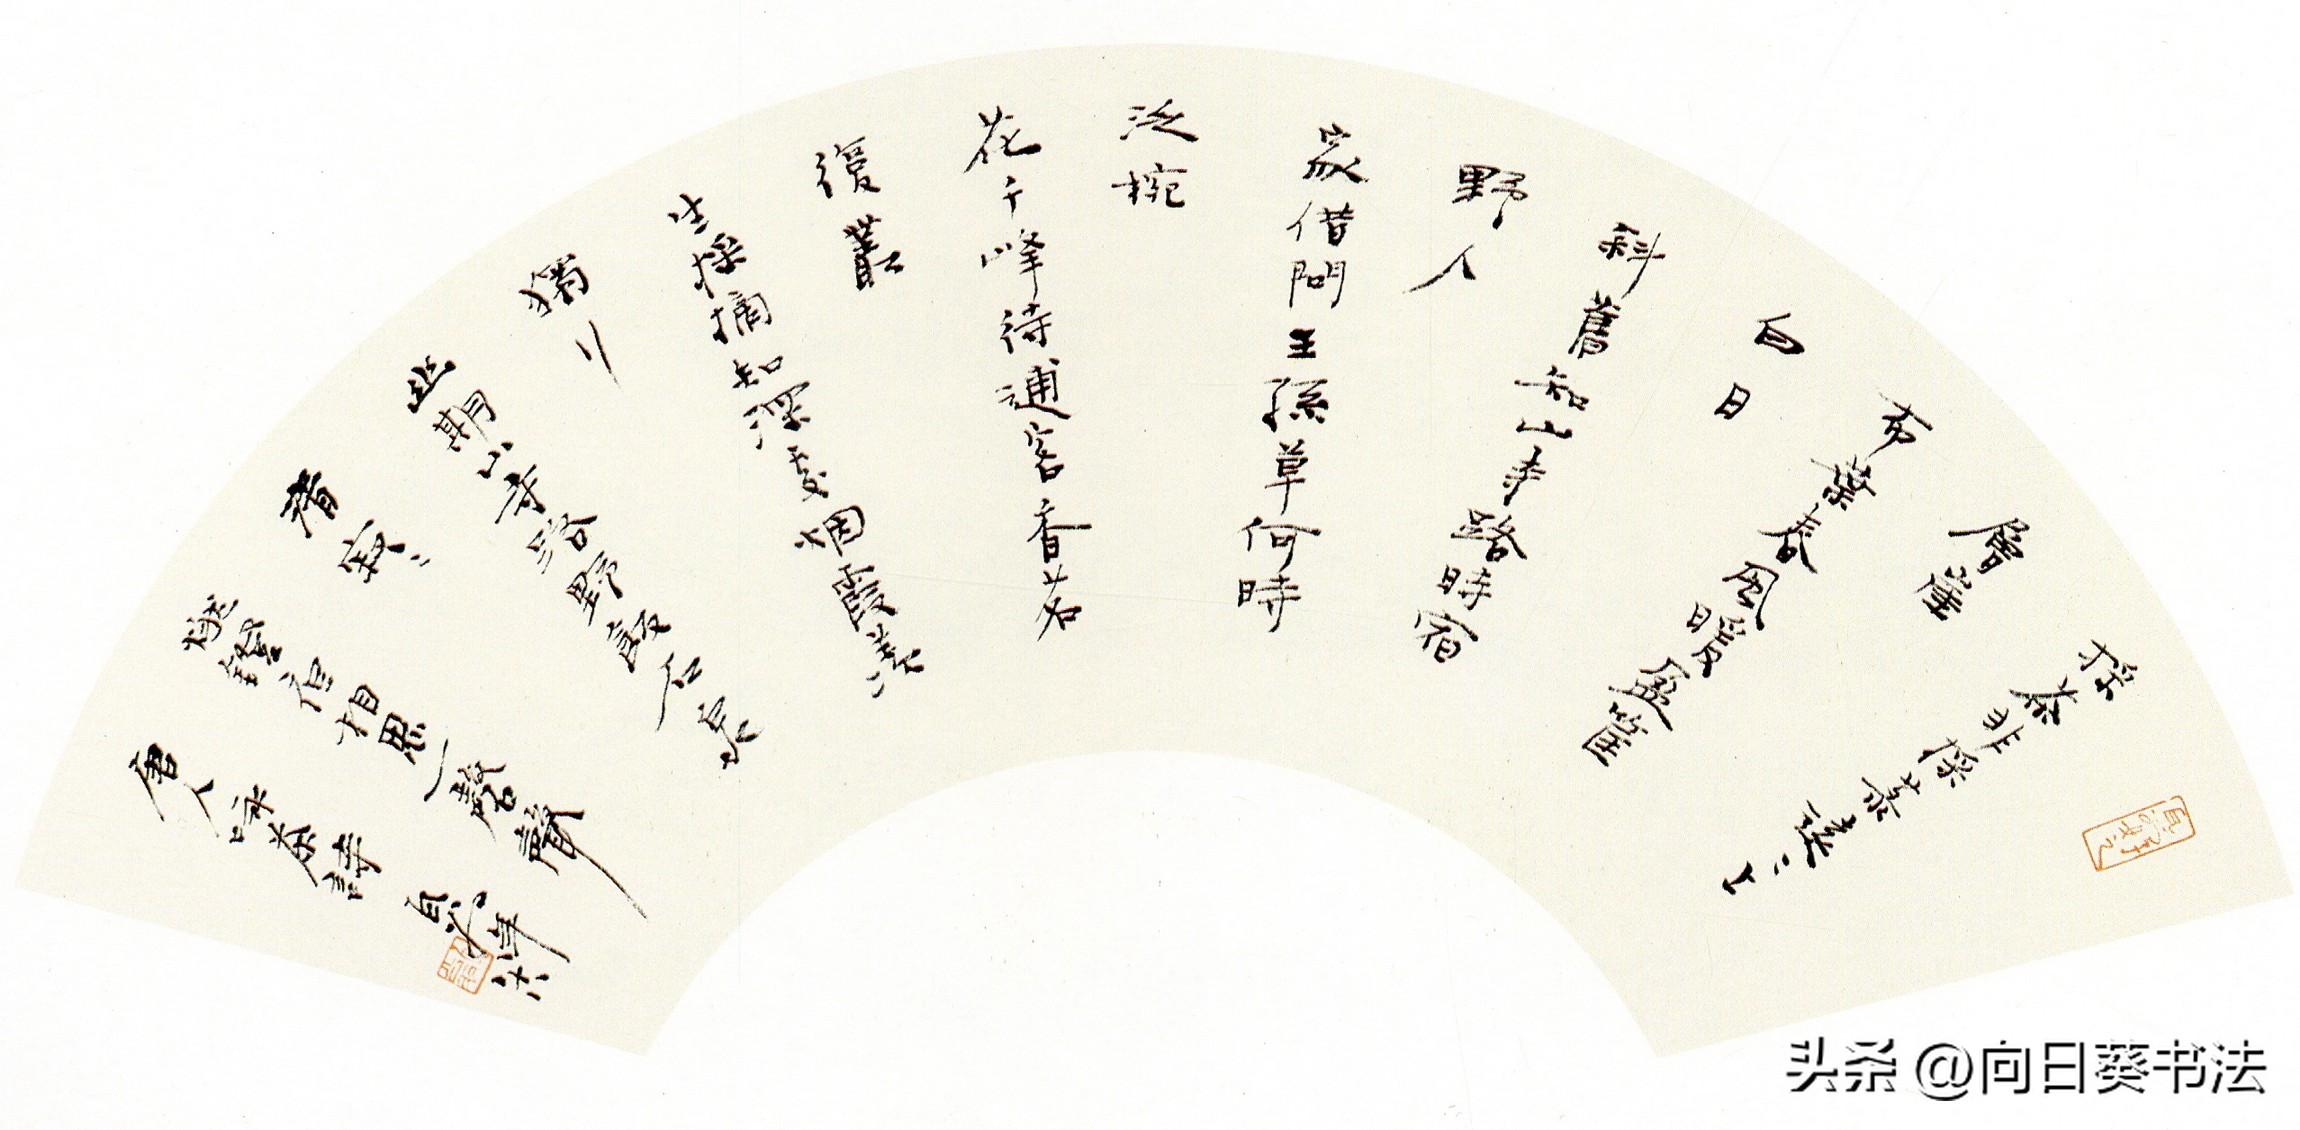 採茶非採菉遠〻上
層崖
布葉春風暖盈筐
白日
斜舊知山寺路時宿
野人
家借問王孫草何時
泛椀
花千峰待逋客香茗
復叢
生採摘知深處烟霞羨
獨行
幽期山寺路野飯石泉
清寂〻
燃燈夜相思一磬聲
唐人咏茶詩
头条 @向日葵书法